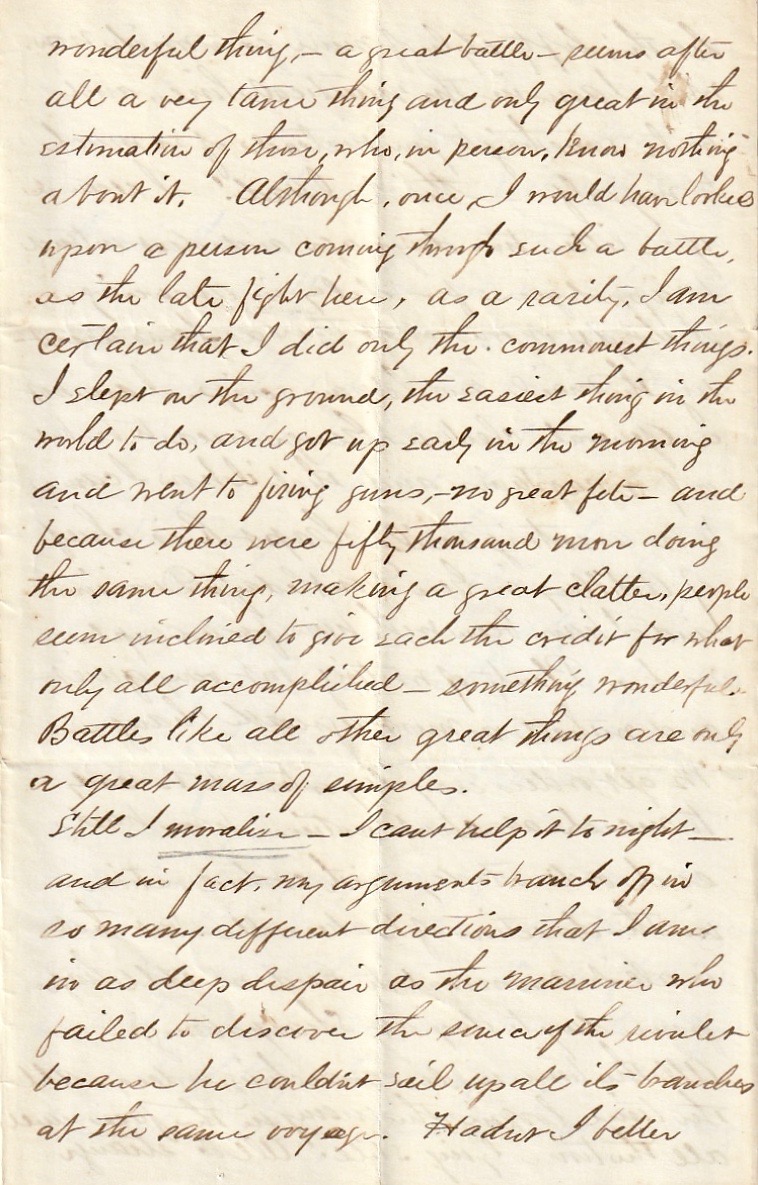 wonderful thing, – a great battle – seems after
all a very tame thing and only great in the
estimation of those, who, in person, know nothing
about it. Although, once, I would have looked
upon a person coming through such a battle,
as the late fight here, as a rarity, I am
certain that I did only the commonest things.
I slept on the ground, the easiest thing in the
world to do, and got up early in the morning
and went to firing guns, – no great fete – and
because there were fifty thousand more doing
the same thing, making a great clatter, people
seem inclined to give each the credit for what
only all accomplished – something wonderful.
Battles like all other great things are only
a great mass of simples.
Still I moralize – I cant help it to night –
and in fact, my arguments branch off in
so many different directions that I am
in as deep despair as the marriner who
failed to discover the source of the rivulet
because he couldnt sail up all its branches
at the same voyage. Hadnt I better